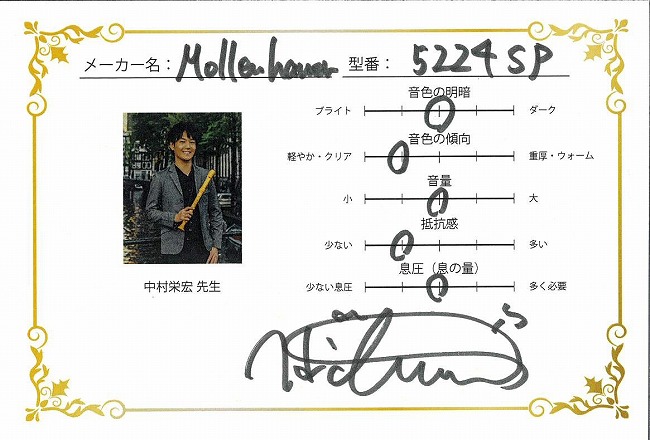 メーカー名：Mollenhauer 型番：5224SP
音色の明暗
ブライト ダーク
音色の傾向
軽やか・クリア 重厚・ウォーム
音量
小 大
抵抗感
少ない 多い
息圧（息の量）
少ない息圧 多く必要
中村栄宏 先生